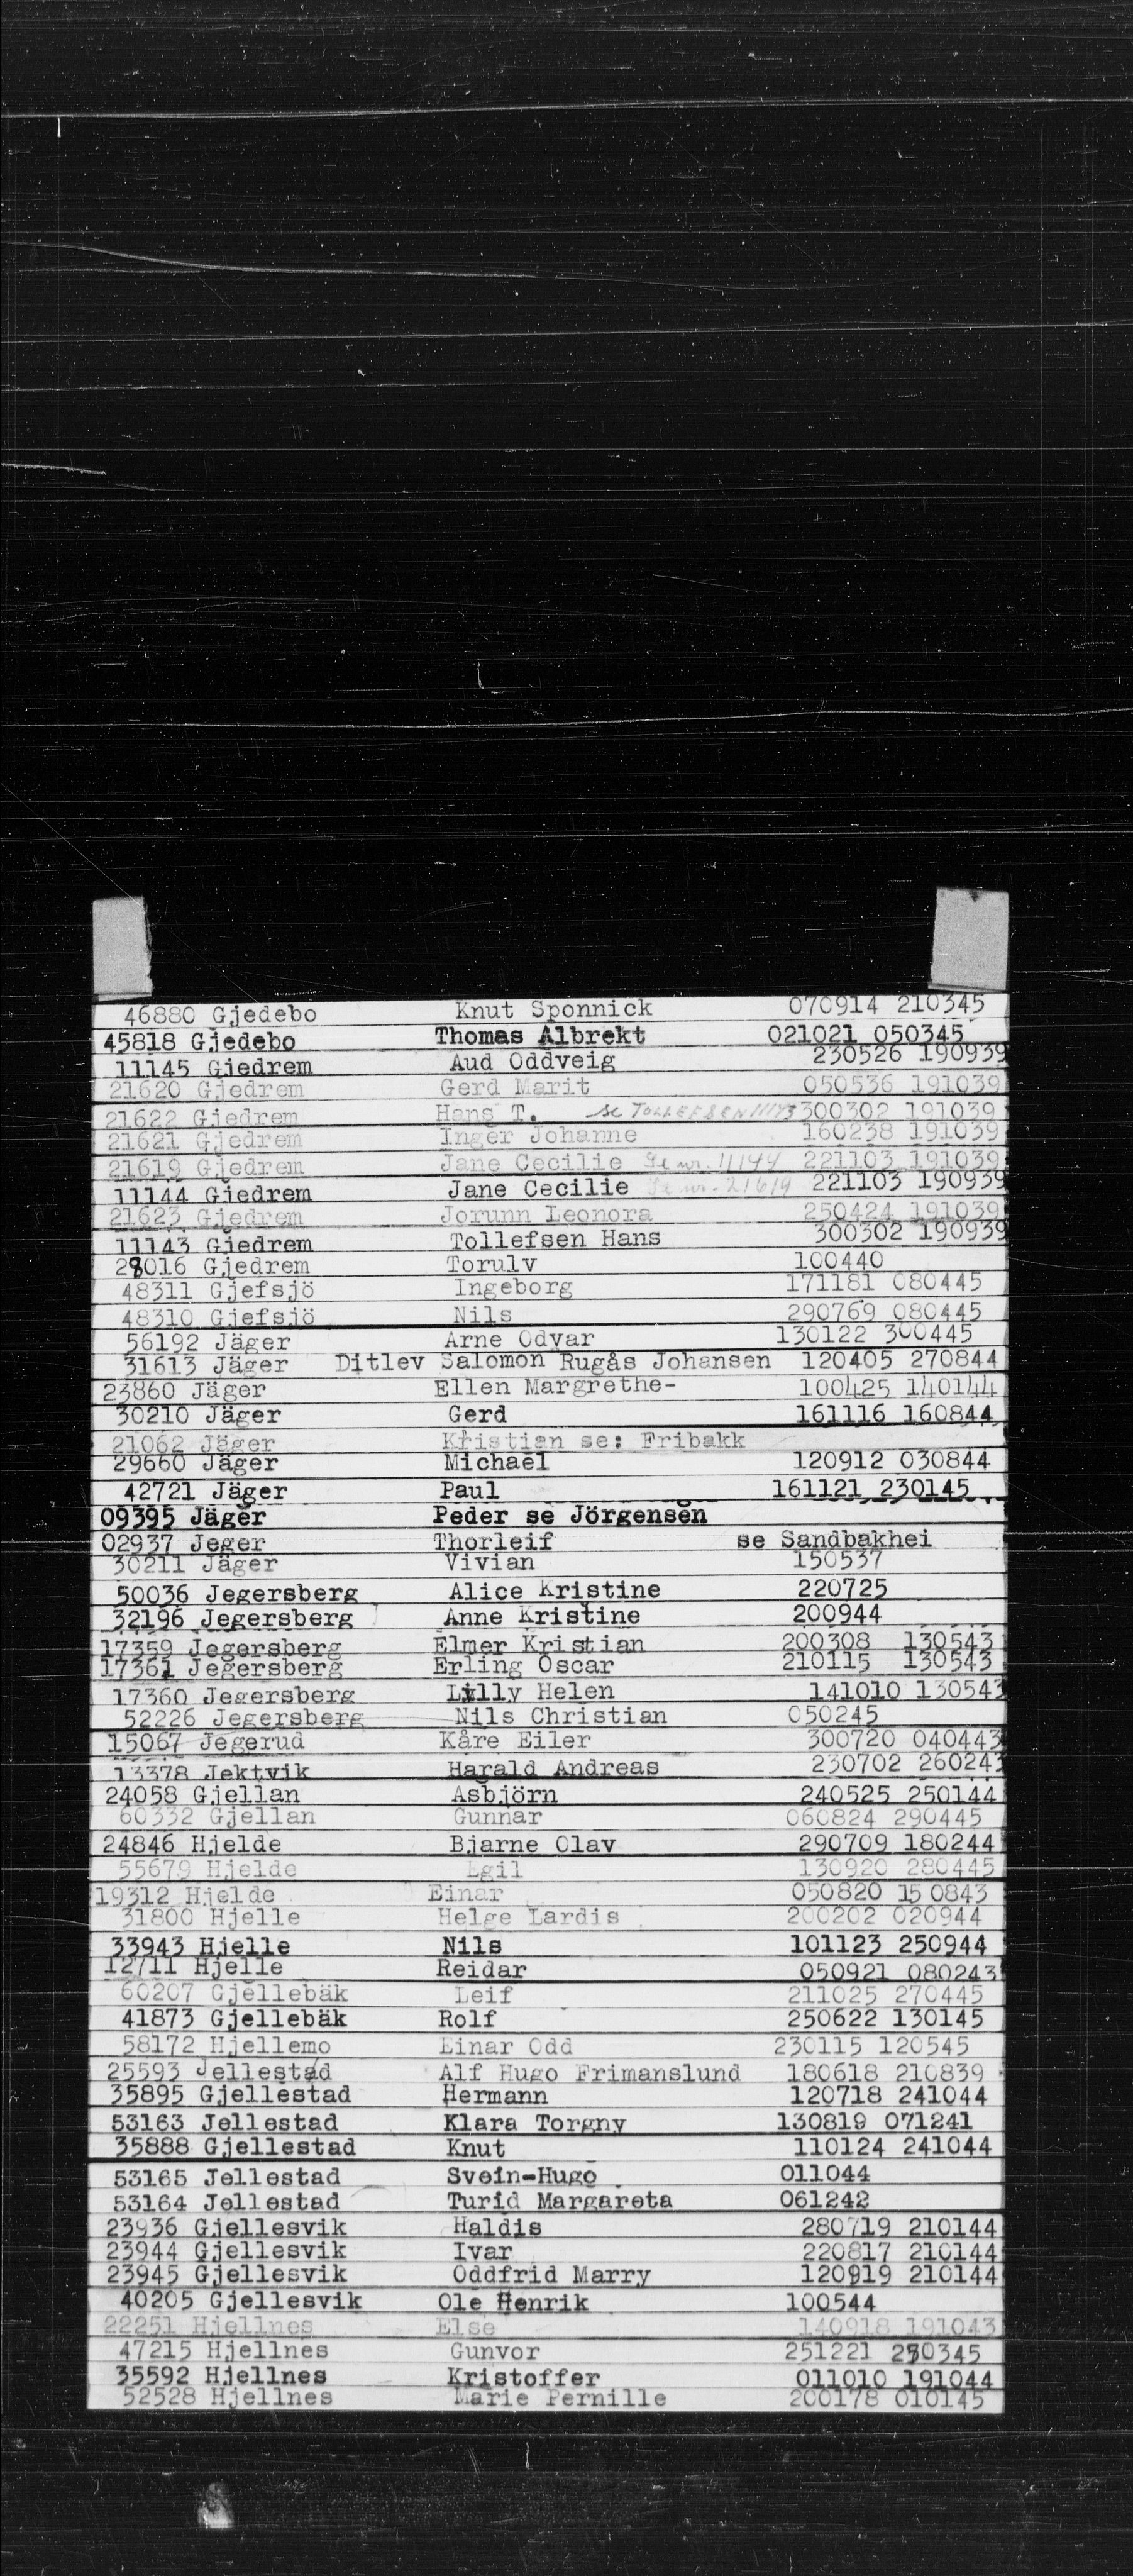 46880 Gjedebo Knut Sponnick 070914 210345
45818 Gjedebo Thomas Albrekt 021021 050345
11145 Gjedrem Aud Oddveig 230526 190939
21620 Gjedrem Gerd Marit 050536 191039
21622 Gjedrem Hans T. se TOLLEFSEN 11143 300302 191039
21621 Gjedrem Inger Johanne 160238 191039
21619 Gjedrem Jane Cecilie Se nr. 11144 221103 191039
11144 Gjedrem Jane Cecilie Se nr. 21619 221103 190939
21623 Gjedrem Jorunn Leonora 250424 191039
11143 Gjedrem Tollefsen Hans 300302 190939
28016 Gjedrem Torulv 100440
48311 Gjefsjö Ingeborg 171181 080445
48310 Gjefsjö Nils 290769 080445
56192 Jäger Arne Odvar 130122 300445
31613 Jäger Ditlev Salomon Rugås Johansen 120405 270844
23860 Jäger Ellen Margrethe- 100425 140144
30210 Jäger Gerd 161116 160844
21062 Jäger Kristian se: Fribakk
29660 Jäger Michael 120912 030844
42721 Jäger Paul 161121 230145
09395 Jäger Peder se Jörgensen
02937 Jeger Thorleif se Sandbakhei
30211 Jäger Vivian 150537
50036 Jegersberg Alice Kristine 220725
32196 Jegersberg Anne Kristine 200944
17359 Jegersberg Elmer Kristian 200308 130543
17361 Jegersberg Erling Oscar 210115 130543
17360 Jegersberg Lilly Helen 141010 130543
52226 Jegersberg Nils Christian 050245
15067 Jegerud Kåre Eiler 300720 040443
13378 Jektvik Harald Andreas 230702 260243
24058 Gjellan Asbjörn 240525 250144
60332 Gjellan Gunnar 060824 290445
24846 Hjelde Bjarne Olav 290709 180244
55679 Hjelde Egil 130920 280445
19312 Hjelde Einar 050820 15 0843
31800 Hjelle Helge Lardis 200202 020944
33943 Hjelle Nils 101123 250944
12711 Hjelle Reidar 050921 080243
60207 Gjellebäk Leif 211025 270445
41873 Gjellebäk Rolf 250622 130145
58172 Hjellemo Einar Odd 230115 120545
25593 Jellestad Alf Hugo Frimanslund 180618 210839
35895 Gjellestad Hermann 120718 241044
53163 Jellestad Klara Torgny 130819 071241
35888 Gjellestad Knut 110124 241044
53165 Jellestad Svein-Hugo 011044
53164 Jellestad Turid Margareta 061242
23936 Gjellesvik Haldis 280719 210144
23944 Gjellesvik Ivar 220817 210144
23945 Gjellesvik Oddfrid Marry 120919 210144
40205 Gjellesvik Ole Henrik 100544
22251 Hjellnes Else 140918 191043
47215 Hjellnes Gunvor 251221 230345
35592 Hjellnes Kristoffer 011010 191044
52528 Hjellnes Marie Pernille 200178 010145